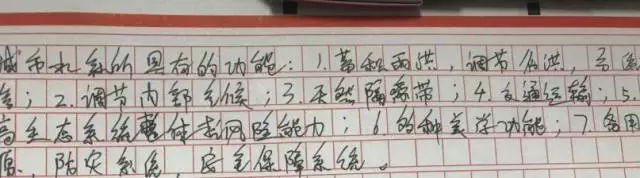 城市水系所具有的功能：1.蓄积雨洪，调节分洪，
；2.调节内部气候；3.天然隔离带；4.交通运输；5.
高生态系统整体抗风险能力；6.的种美学功能；7.备用
源，防灾系统，安全保障系统。